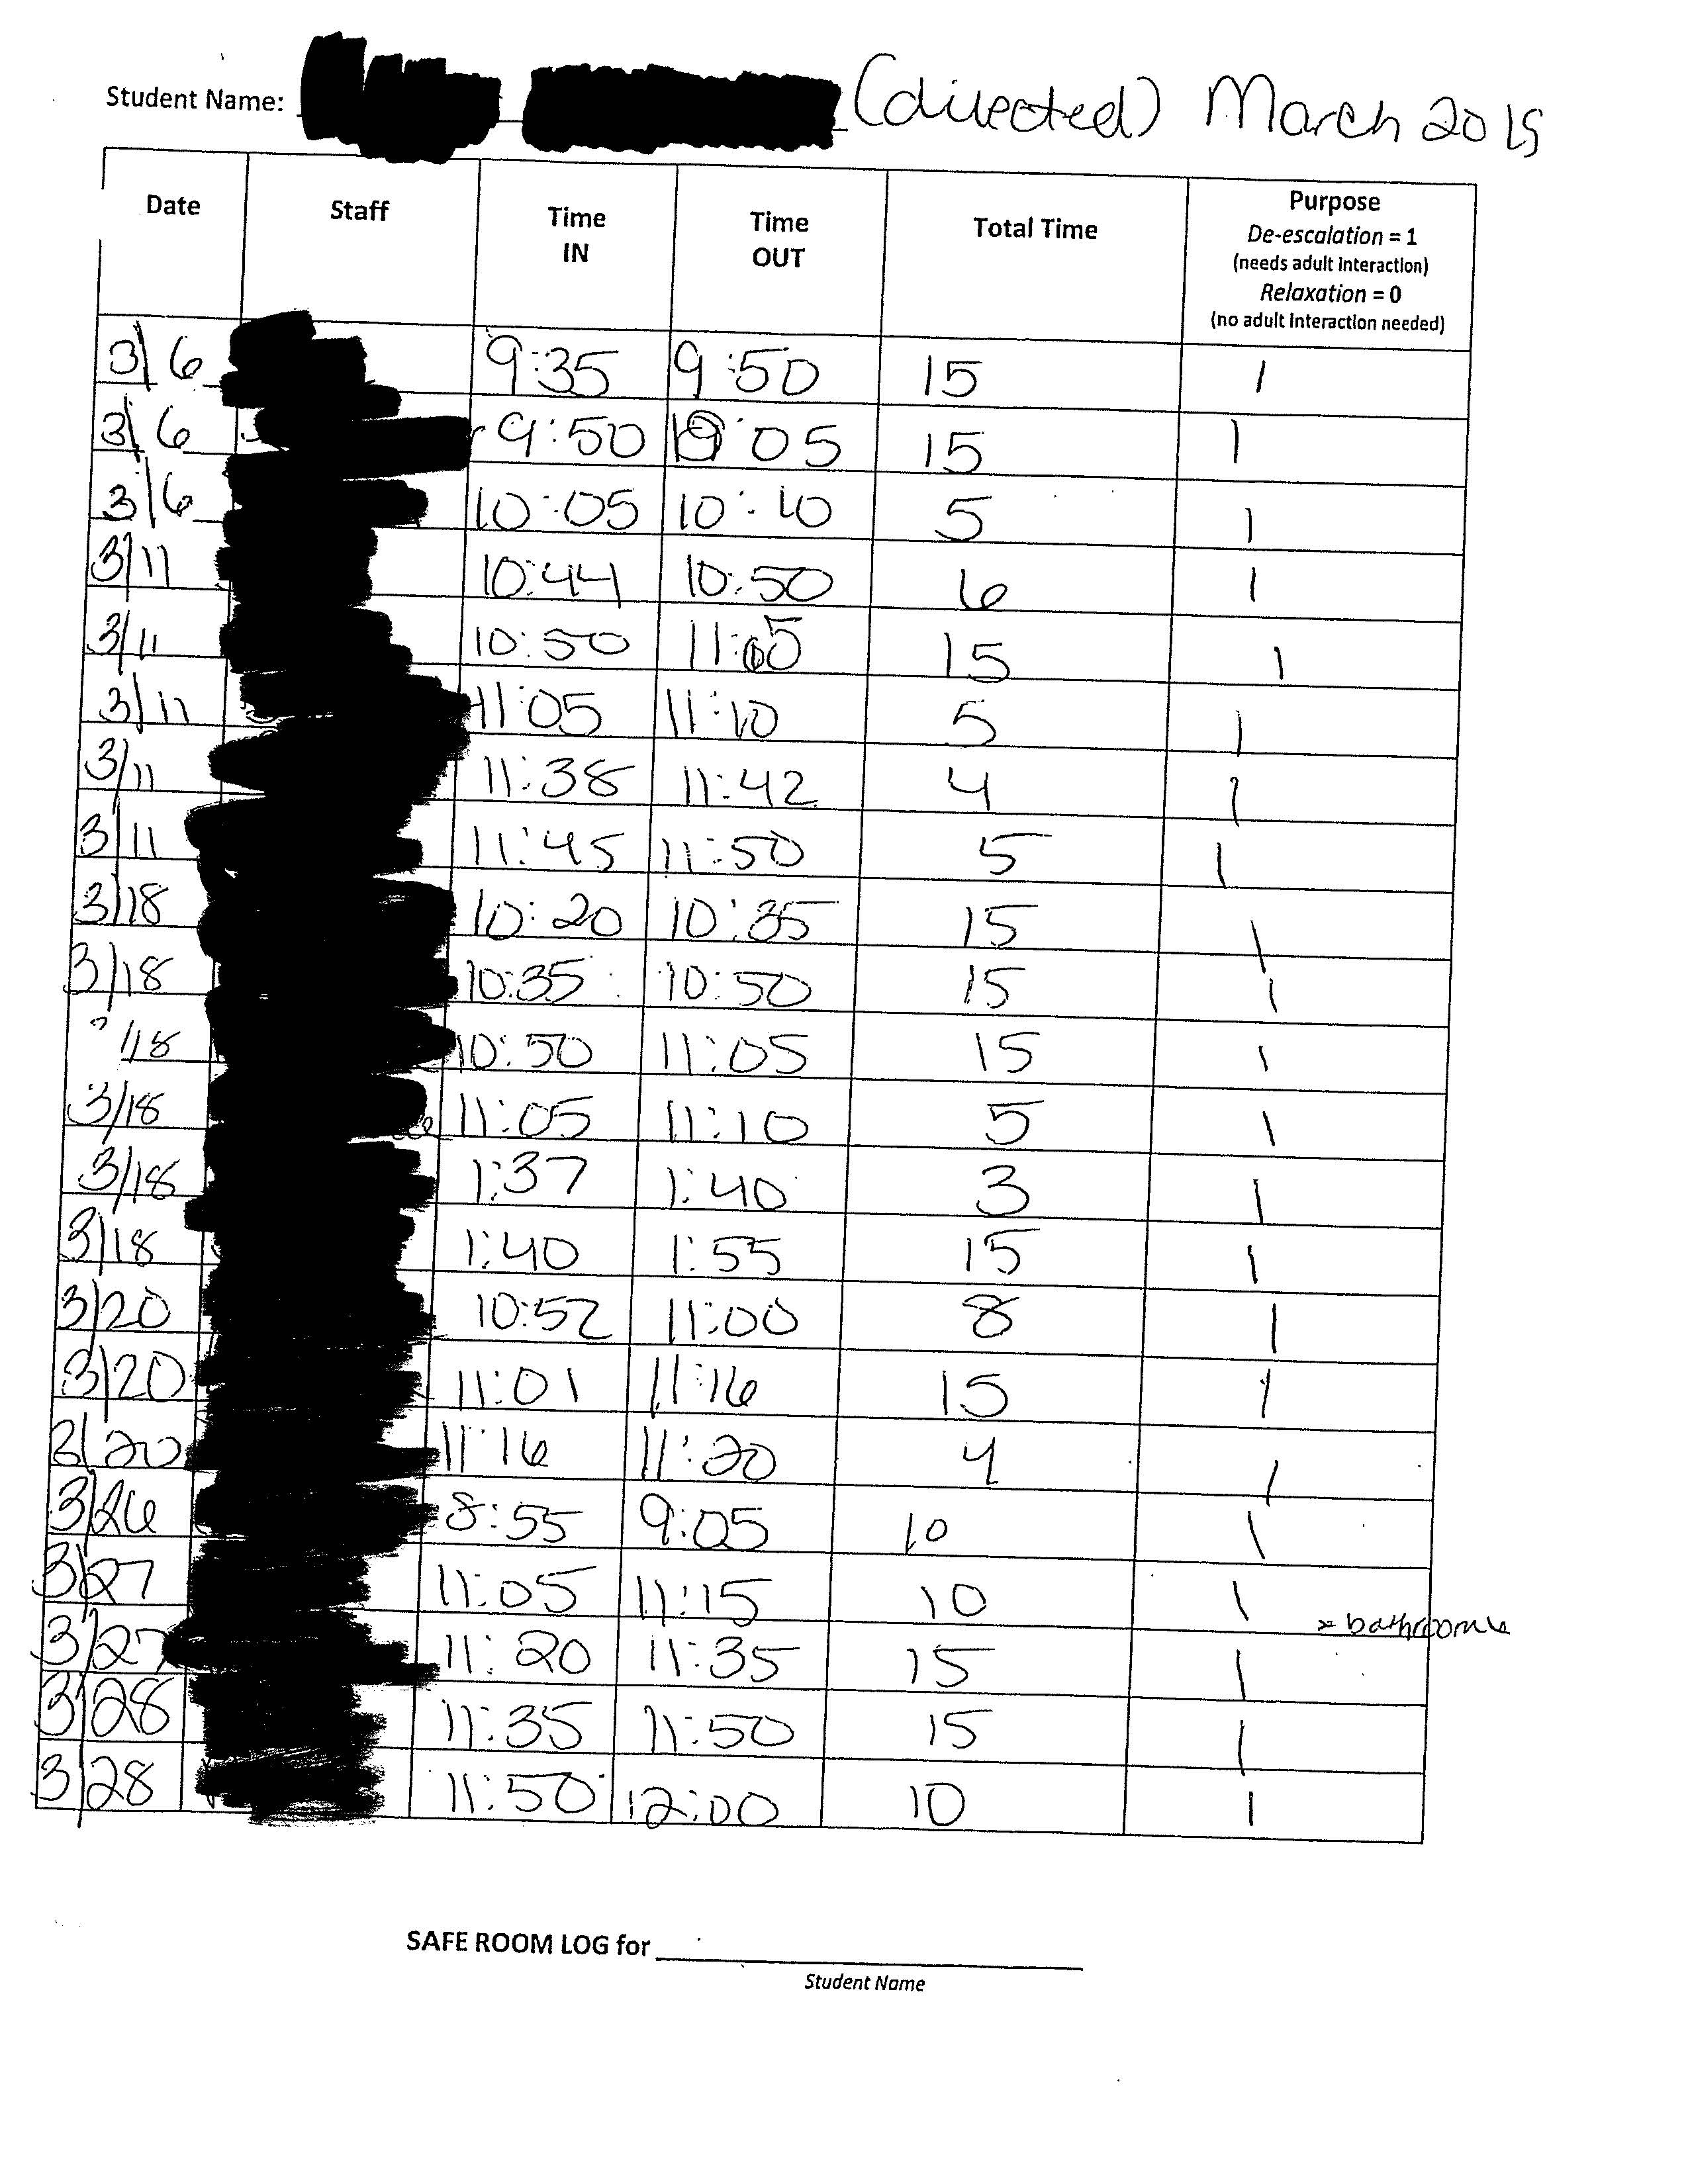 Student Name: (directed) March 2015
Date Staff Time IN Time OUT Total Time Purpose
De-escalation = 1
(needs adult interaction)
Relaxation = 0
(no adult interaction needed)
3/6 9:35 9:50 15 1
3/6 9:50 10:05 15 1
3/6 10:05 10:10 5 1
3/11 10:44 10:50 6 1
3/11 10:50 11:05 15 1
3/11 11:05 11:10 5 1
3/11 11:38 11:42 4 1
3/11 11:45 11:50 5 1
3/18 10:20 10:35 15 1
3/18 10:35 10:50 15 1
/18 10:50 11:05 15 1
3/18 11:05 11:10 5 1
3/18 1:37 1:40 3 1
3/18 1:40 1:55 15 1
3/20 10:52 11:00 8 1
3/20 11:01 11:16 15 1
3/20 11:16 11:20 4 1
3/26 8:55 9:05 10 1
3/27 11:05 11:15 10 1
* bathroom
3/27 11:20 11:35 15 1
3/28 11:35 11:50 15 1
3/28 11:50 12:00 10 1
SAFE ROOM LOG for
Student Name